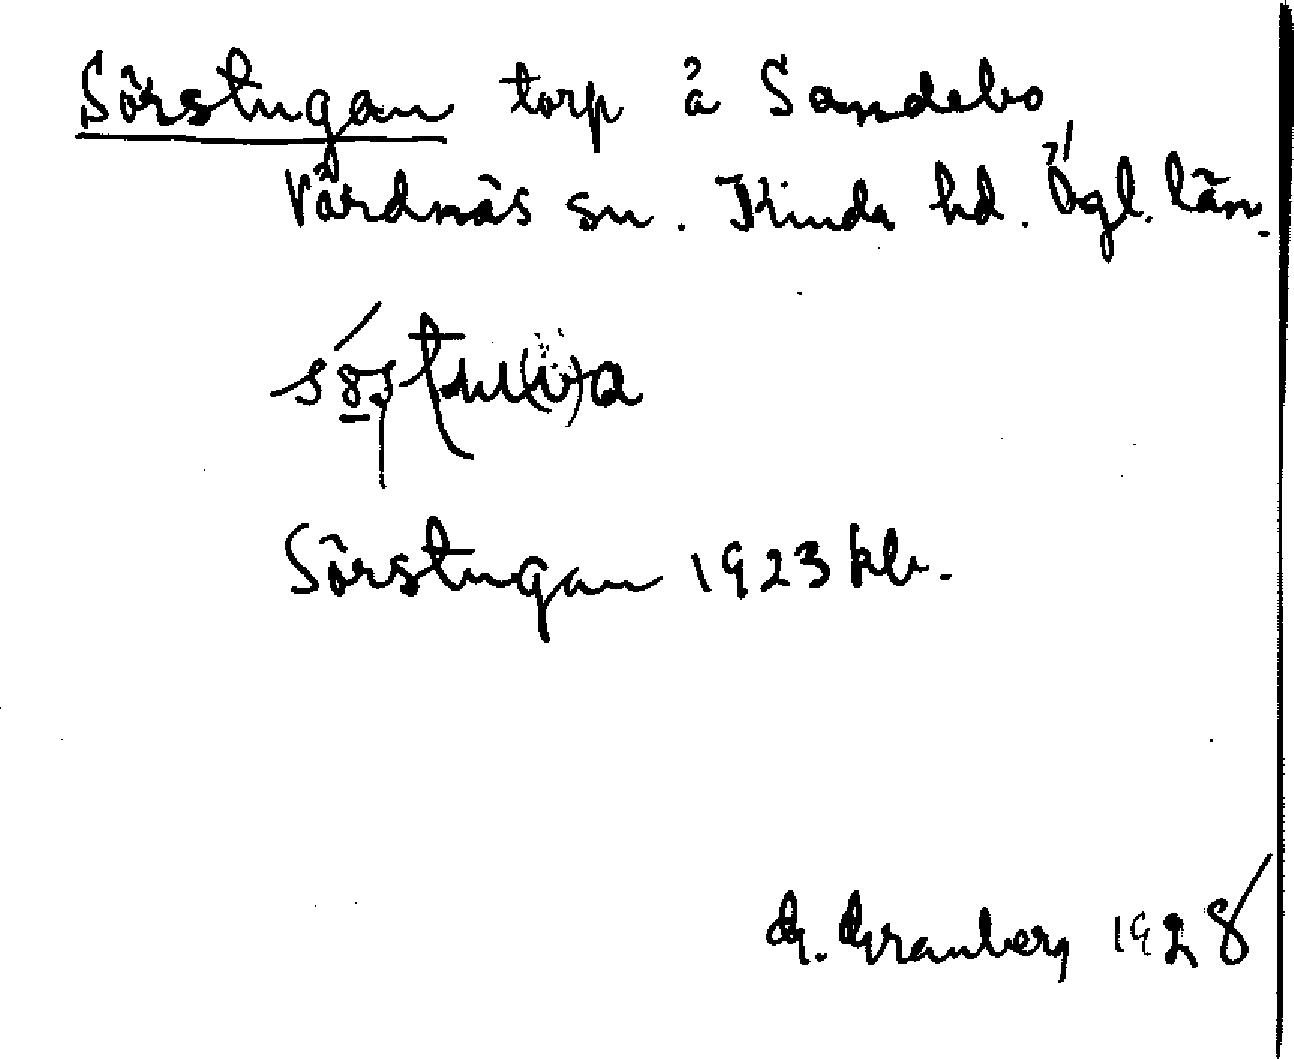 Sörstugan torp å Sandebo
Vårdnäs sn. Kinda hd. Ögl. län.
Sörstugan 1923 kb.
G. Granberg 1928